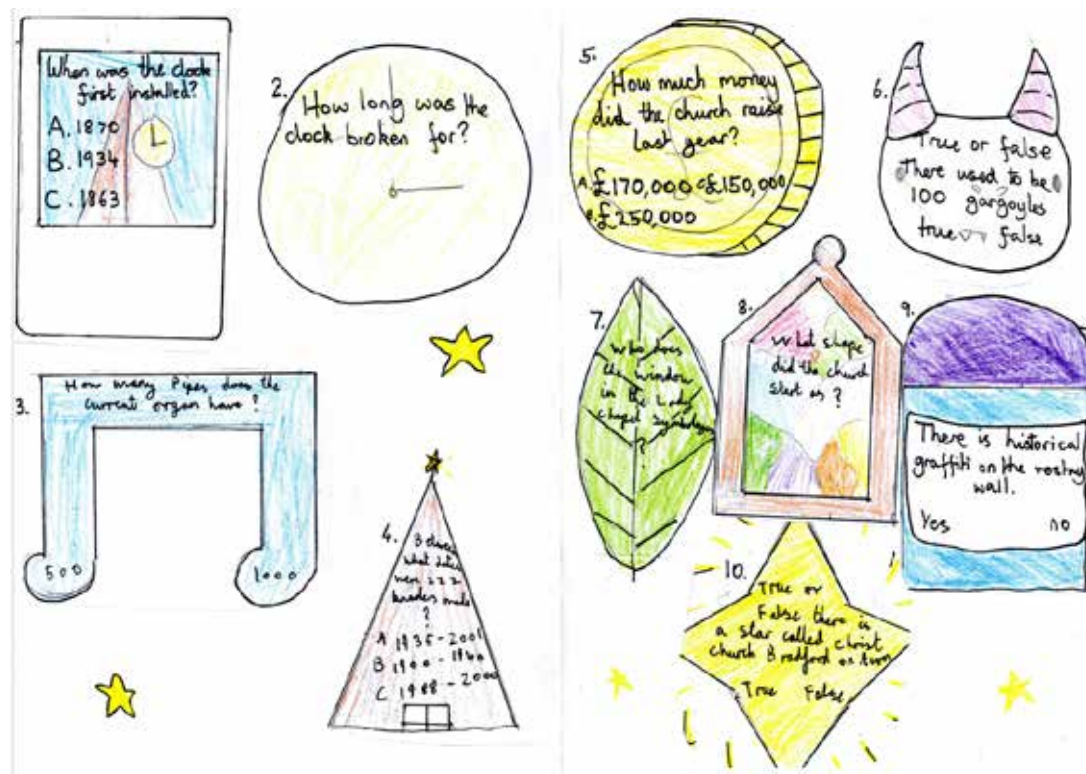 When was the clock
first installed?
A. 1870
B. 1934
C. 1863
2.
How long was the
clock broken for?
3.
How many Pipes does the
current organ have?
500
1000
4.
Between
what dates
were 222
kneelers made
?
A 1935-2001
B 1900-1940
C 1988-2000
5.
How much money
did the church raise
last year?
A. £170,000 C £150,000
B. £250,000
6.
True or false
There used to be
100 gargoyles
true or false
7.
Who does
the window
in the Lady
chapel symbolize
?
8.
What shape
did the church
start as?
9.
There is historical
graffiti on the vestry
wall.
Yes no
10.
True or
False there is
a star called christ
church Bradford on Avon
True False